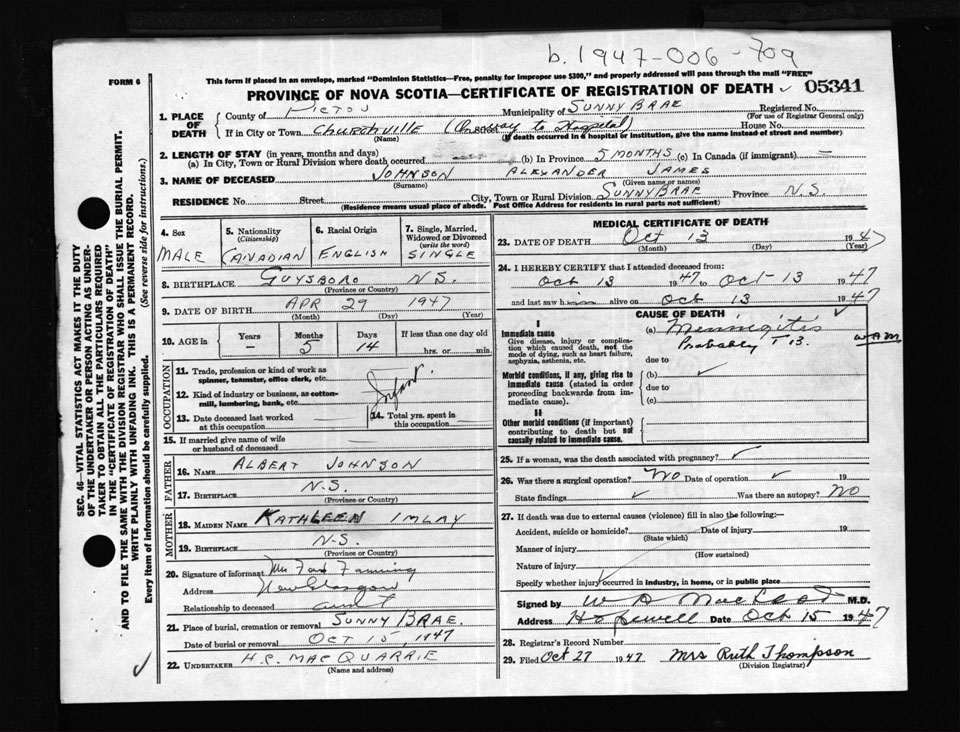 b. 1947-006-709
FORM 6
This form if placed in an envelope, marked "Dominion Statistics—Free, penalty for improper use $300," and properly addressed will pass through the mail "FREE"
PROVINCE OF NOVA SCOTIA—CERTIFICATE OF REGISTRATION OF DEATH 05341
1. PLACE OF DEATH
County of PICTOU Municipality of SUNNY BRAE Registered No.
(For use of Registrar General only)
If in City or Town Churchville (On way to Hospital) House No.
(Name) (If death occurred in a hospital or institution, give the name instead of street and number)
2. LENGTH OF STAY (in years, months and days)
(a) In City, Town or Rural Division where death occurred (b) In Province 5 MONTHS (c) In Canada (if immigrant) —
3. NAME OF DECEASED JOHNSON ALEXANDER JAMES
(Surname) (Given name or names)
RESIDENCE No. Street City, Town or Rural Division SUNNY BRAE Province N.S.
(Residence means usual place of abode. Post Office Address for residents in rural parts not sufficient)
4. Sex
MALE
5. Nationality (Citizenship)
CANADIAN
6. Racial Origin
ENGLISH
7. Single, Married, Widowed or Divorced (write the word)
SINGLE
8. BIRTHPLACE GUYSBORO N.S.
(Province or Country)
9. DATE OF BIRTH APR 29 1947
(Month) (Day) (Year)
10. AGE in Years Months Days If less than one day old
— 5 14 hrs. or min.
OCCUPATION
11. Trade, profession or kind of work as spinner, teamster, office clerk, etc.
Infant.
12. Kind of industry or business, as cotton-mill, lumbering, bank, etc.
13. Date deceased last worked at this occupation
14. Total yrs. spent in this occupation
15. If married give name of wife or husband of deceased
FATHER
16. NAME ALBERT JOHNSON
17. BIRTHPLACE N.S.
(Province or Country)
MOTHER
18. MAIDEN NAME KATHLEEN IMLAY
19. BIRTHPLACE N.S.
(Province or Country)
20. Signature of informant Fanning
Address New Glasgow
Relationship to deceased aunt
21. Place of burial, cremation or removal SUNNY BRAE.
Date of burial or removal OCT 15 1947
22. UNDERTAKER H.C. MACQUARRIE
(Name and address)
MEDICAL CERTIFICATE OF DEATH
23. DATE OF DEATH Oct 13 1947
(Month) (Day) (Year)
24. I HEREBY CERTIFY that I attended deceased from:
Oct 13 1947 to Oct-13 1947
and last saw him alive on Oct 13 1947
CAUSE OF DEATH
I
Immediate cause
Give disease, injury or complication which caused death, not the mode of dying, such as heart failure, asphyxia, asthenia, etc.
(a) Meningitis
Probably T 13. W A M
due to
Morbid conditions, if any, giving rise to immediate cause (stated in order proceeding backwards from immediate cause).
(b)
due to
(c)
II
Other morbid conditions (if important) contributing to death but not causally related to immediate cause.
25. If a woman, was the death associated with pregnancy?
26. Was there a surgical operation? No Date of operation 19
State findings Was there an autopsy? No
27. If death was due to external causes (violence) fill in also the following:—
Accident, suicide or homicide? Date of injury 19
(State which)
Manner of injury
(How sustained)
Nature of injury
Specify whether injury occurred in industry, in home, or in public place
Signed by W A MacLeod M.D.
Address Hopewell Date Oct 15 1947
28. Registrar's Record Number
29. Filed Oct 27 1947 Mrs Ruth Thompson
(Division Registrar)
SEC. 46—VITAL STATISTICS ACT MAKES IT THE DUTY
OF THE UNDERTAKER OR PERSON ACTING AS UNDER-
TAKER TO OBTAIN ALL THE PARTICULARS REQUIRED
IN THE "CERTIFICATE OF REGISTRATION OF DEATH"
AND TO FILE THE SAME WITH THE DIVISION REGISTRAR WHO SHALL ISSUE THE BURIAL PERMIT.
WRITE PLAINLY WITH UNFADING INK. THIS IS A PERMANENT RECORD.
Every item of information should be carefully supplied. (See reverse side for instructions.)